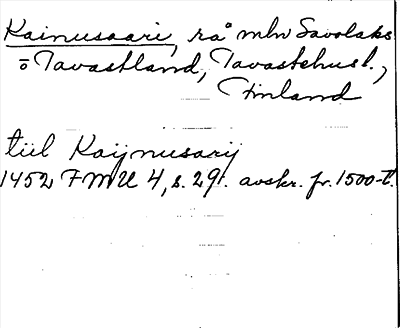 Kainusaari, rå mln Savolaks
o Tavastland, Tavastehusl.,
Finland
till Kaijnusarij
1452 FMU 4, s. 29. avskr. fr. 1500-t.